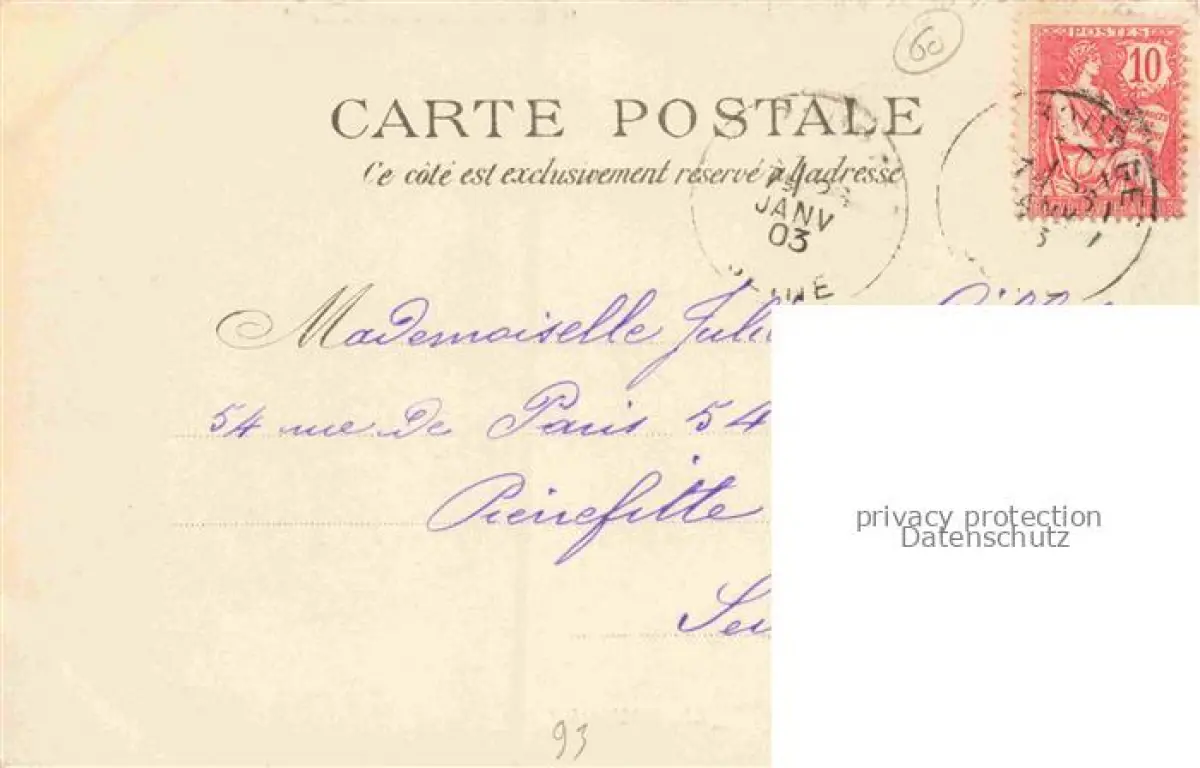 60
POSTES
10
CARTE POSTALE
Ce côté est exclusivement réservé à l'adresse
JANV
03
Mademoiselle
54 rue de Paris 54
Pierrefitte
privacy protection
Datenschutz
93